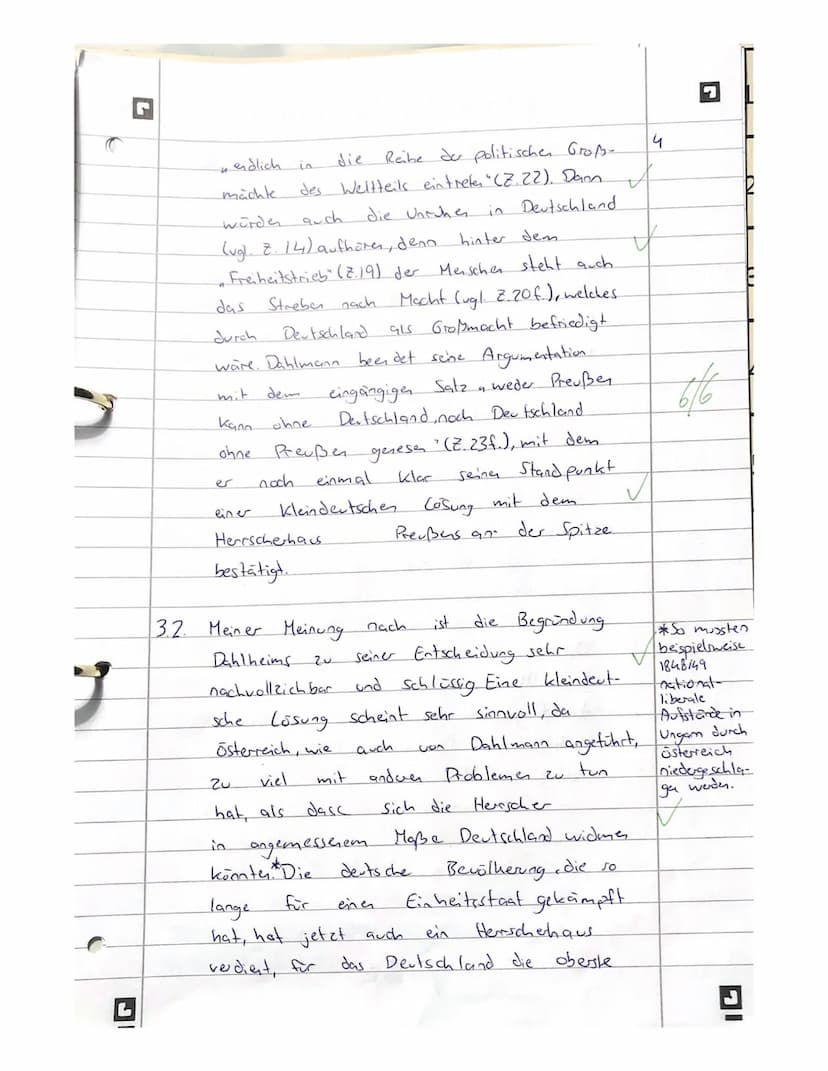 4
„endlich in die Reihe der politischen Groß-
mächte des Weltteils eintreten“ (Z.22). Dann
würden auch die Unruhen in Deutschland
(vgl. Z. 14) aufhören, denn hinter dem
„Freiheitstrieb“ (Z.19) der Menschen steht auch
das Streben nach Macht (vgl. Z.20f.), welches
durch Deutschland als Großmacht befriedigt
wäre. Dahlmann beendet seine Argumentation
mit dem eingängigen Satz „weder Preußen
kann ohne Deutschland, noch Deutschland
ohne Preußen genesen“ (Z.23f.), mit dem
er noch einmal klar seinen Standpunkt
einer kleindeutschen Lösung mit dem
Herrscherhaus Preußens an der Spitze
bestätigt.
6/6
3.2. Meiner Meinung nach ist die Begründung
Dahlheims zu seiner Entscheidung sehr
nachvollziehbar und schlüssig. Eine kleindeut-
sche Lösung scheint sehr sinnvoll, da
Österreich, wie auch von Dahlmann angeführt,
zu viel mit anderen Problemen zu tun
hat, als dass sich die Herrscher
in angemessenem Maße Deutschland widmen
könnten.* Die deutsche Bevölkerung, die so
lange für einen Einheitsstaat gekämpft
hat, hat jetzt auch ein Herrscherhaus
verdient, für das Deutschland die oberste
*So mussten
beispielsweise
1848/49
national-
liberale
Aufstände in
Ungarn durch
Österreich
niedergeschla-
gen werden.